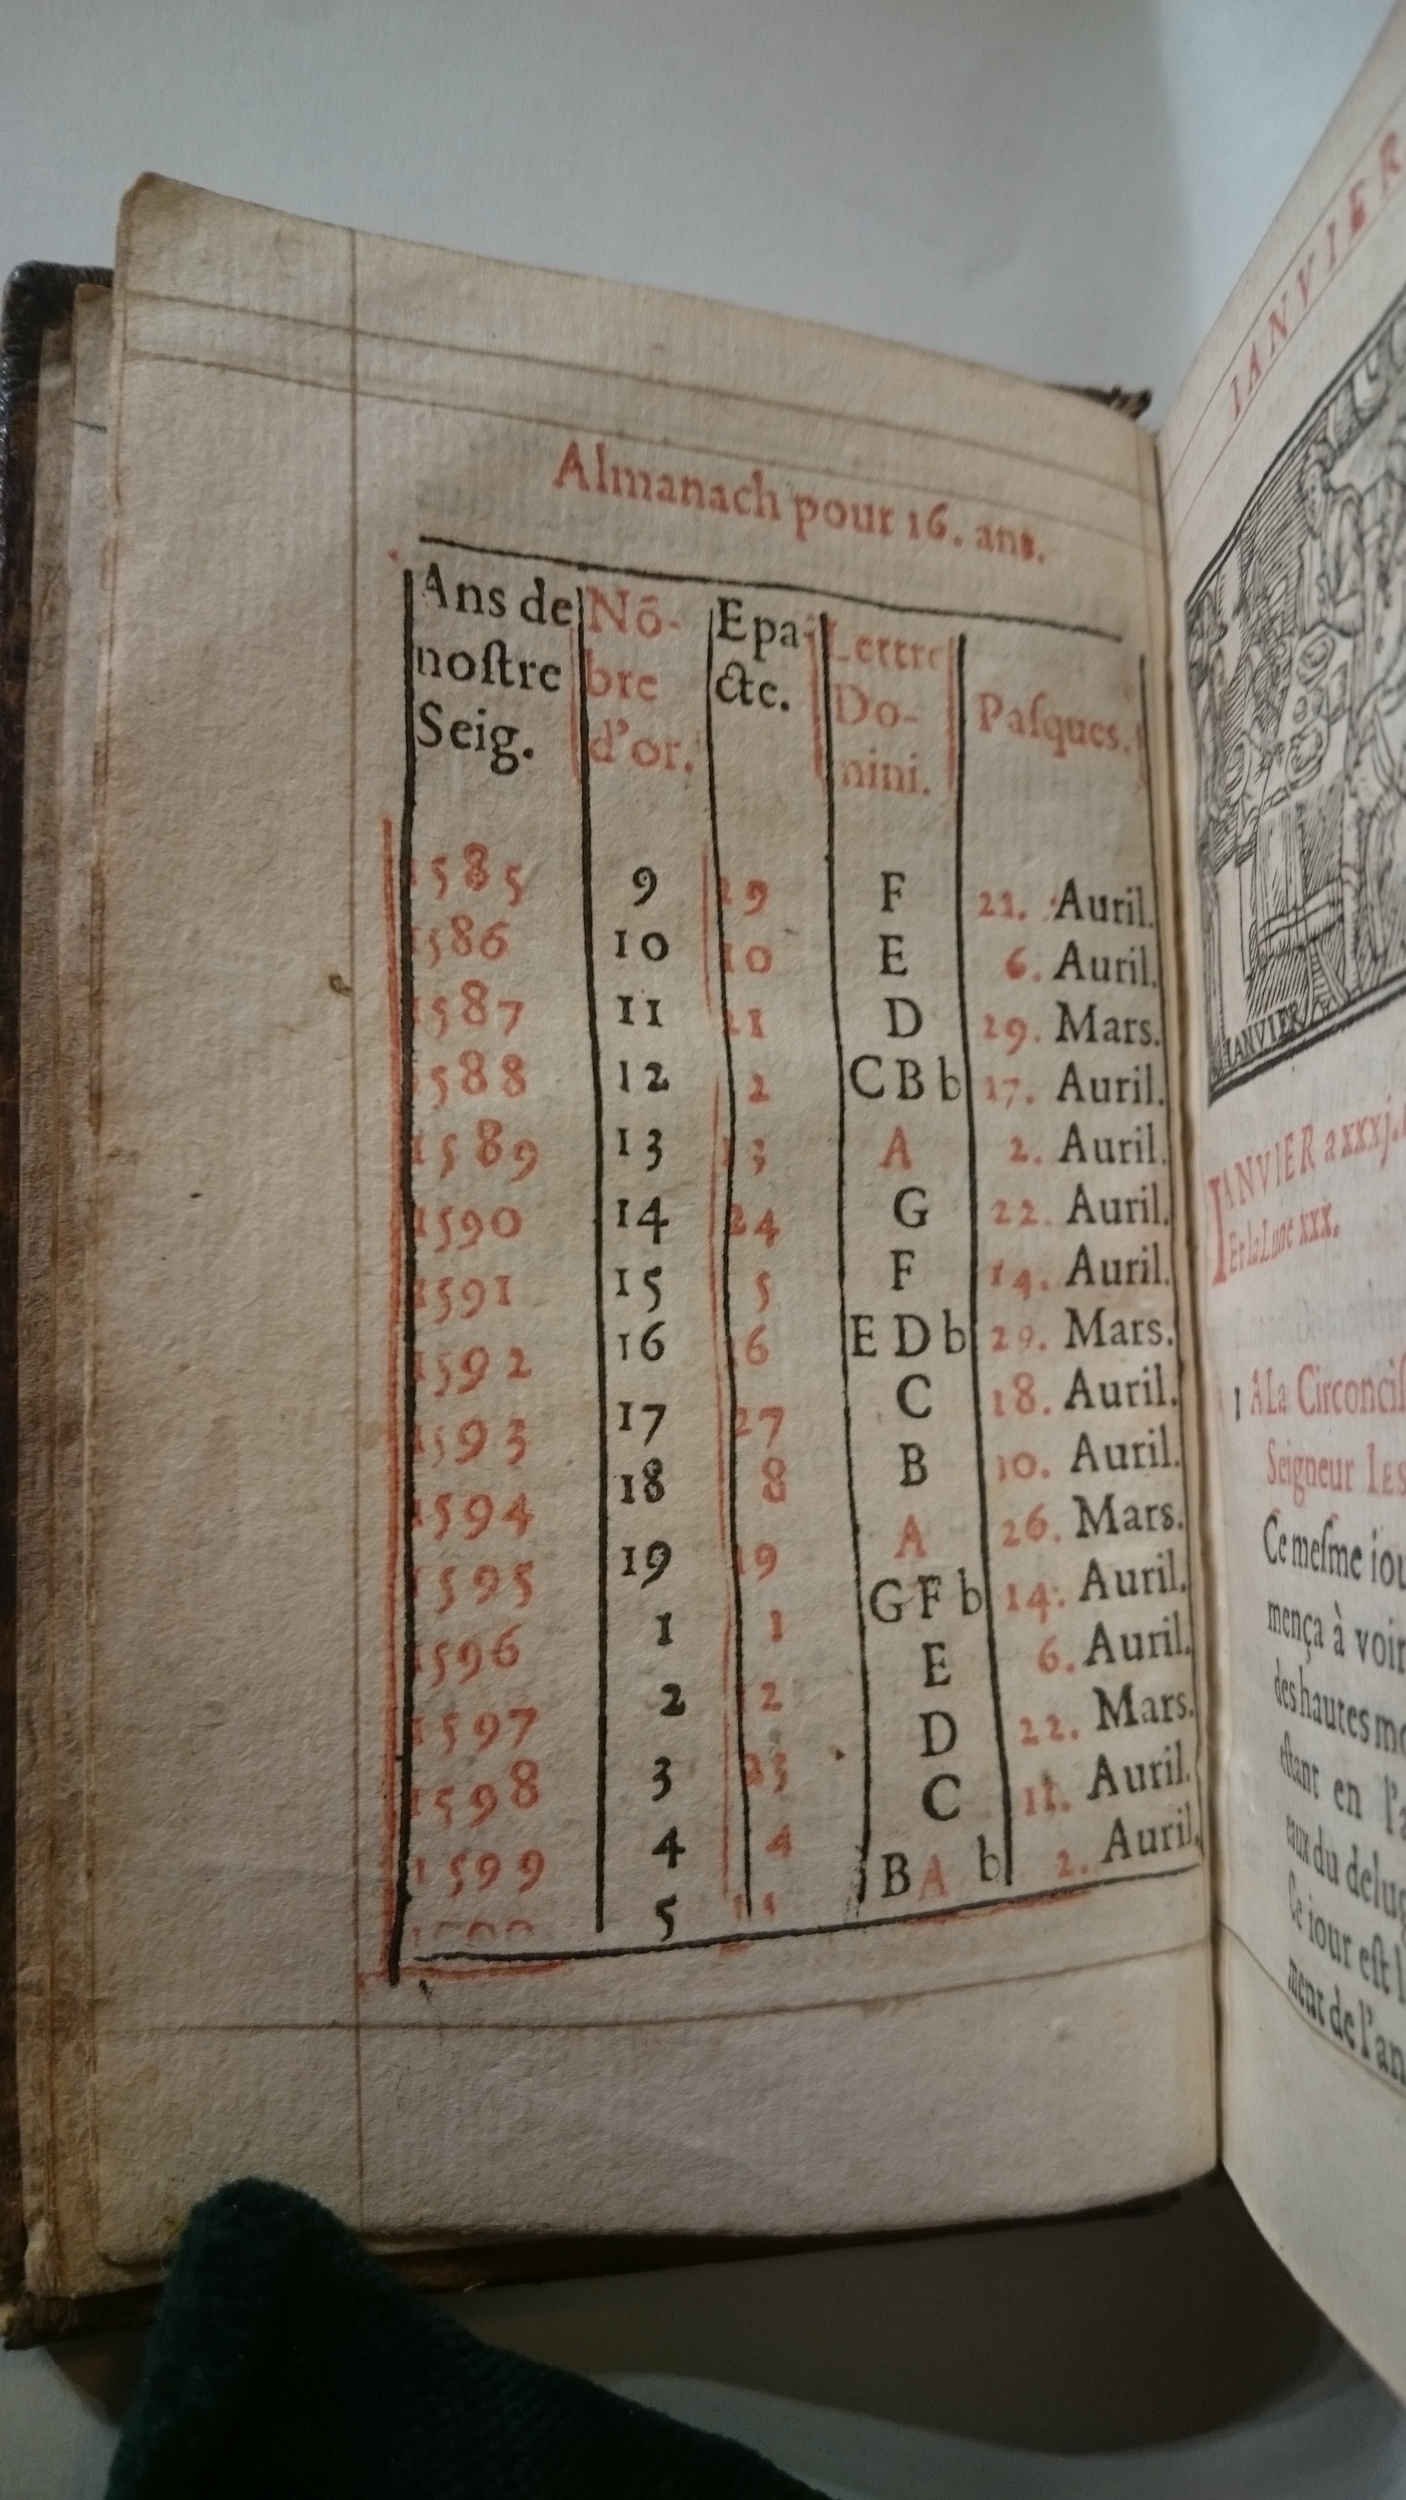 Almanach pour 16. ans.
Ans de Nõ- Epa- Lettre
noſtre bre cte. Do- Paſques.
Seig. d'or. mini.
1585 9 29 F 21. Auril.
1586 10 10 E 6. Auril.
1587 11 21 D 29. Mars.
1588 12 2 C B b 17. Auril.
1589 13 13 A 2. Auril.
1590 14 24 G 22. Auril.
1591 15 5 F 14. Auril.
1592 16 16 E D b 29. Mars.
1593 17 27 C 18. Auril.
1594 18 8 B 10. Auril.
1595 19 19 A 26. Mars.
1596 1 1 G F b 14. Auril.
1597 2 2 E 6. Auril.
1598 3 23 D 22. Mars.
1599 4 4 C 11. Auril.
5 B A b 2. Auril.
IANVIER
IANVIER
IANVIER a xxxj.
Et la Lune xxx.
1 A La Circonciſ
Seigneur IES
Ce meſme iou
mença à voir
des hautes mo
eſtant en l'a
eaux du delug
Ce iour eſt l
ment de l'an